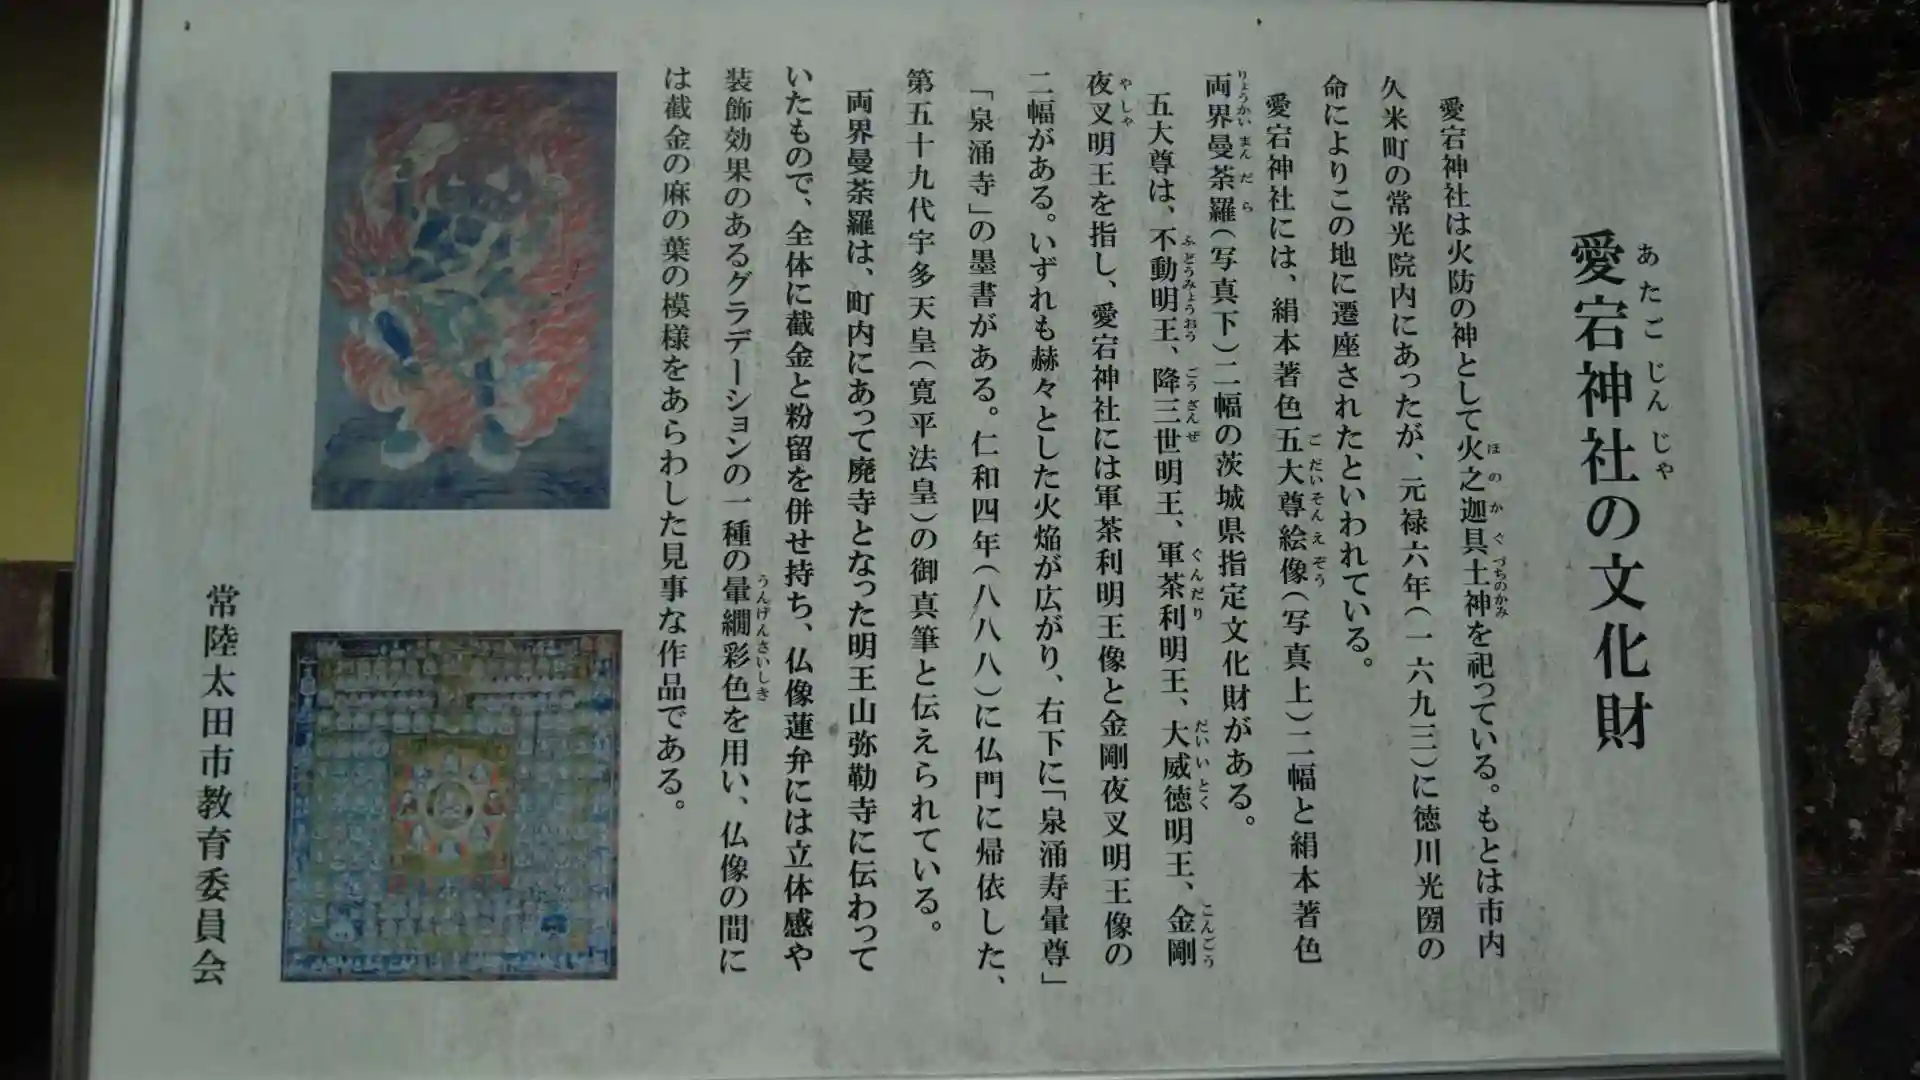 愛宕神社の文化財
あたごじんじゃ
愛宕神社は火防の神として火之迦具土神を祀っている。もとは市内
ほのかぐづちのかみ
久米町の常光院内にあったが、元禄六年(一六九三)に徳川光圀の
命によりこの地に遷座されたといわれている。
愛宕神社には、絹本著色五大尊絵像(写真上)二幅と絹本著色
ごだいそんえぞう
両界曼荼羅(写真下)二幅の茨城県指定文化財がある。
りょうかいまんだら
五大尊は、不動明王、降三世明王、軍茶利明王、大威徳明王、金剛
ふどうみょうおう ごうざんぜ ぐんだり だいいとく こんごう
夜叉明王を指し、愛宕神社には軍茶利明王像と金剛夜叉明王像の
やしゃ
二幅がある。いずれも赫々とした火焔が広がり、右下に「泉涌寿暈尊」
「泉涌寺」の墨書がある。仁和四年(八八八)に仏門に帰依した、
第五十九代宇多天皇(寛平法皇)の御真筆と伝えられている。
両界曼荼羅は、町内にあって廃寺となった明王山弥勒寺に伝わって
いたもので、全体に截金と粉留を併せ持ち、仏像蓮弁には立体感や
装飾効果のあるグラデーションの一種の暈繝彩色を用い、仏像の間に
うんげんさいしき
は截金の麻の葉の模様をあらわした見事な作品である。
常陸太田市教育委員会